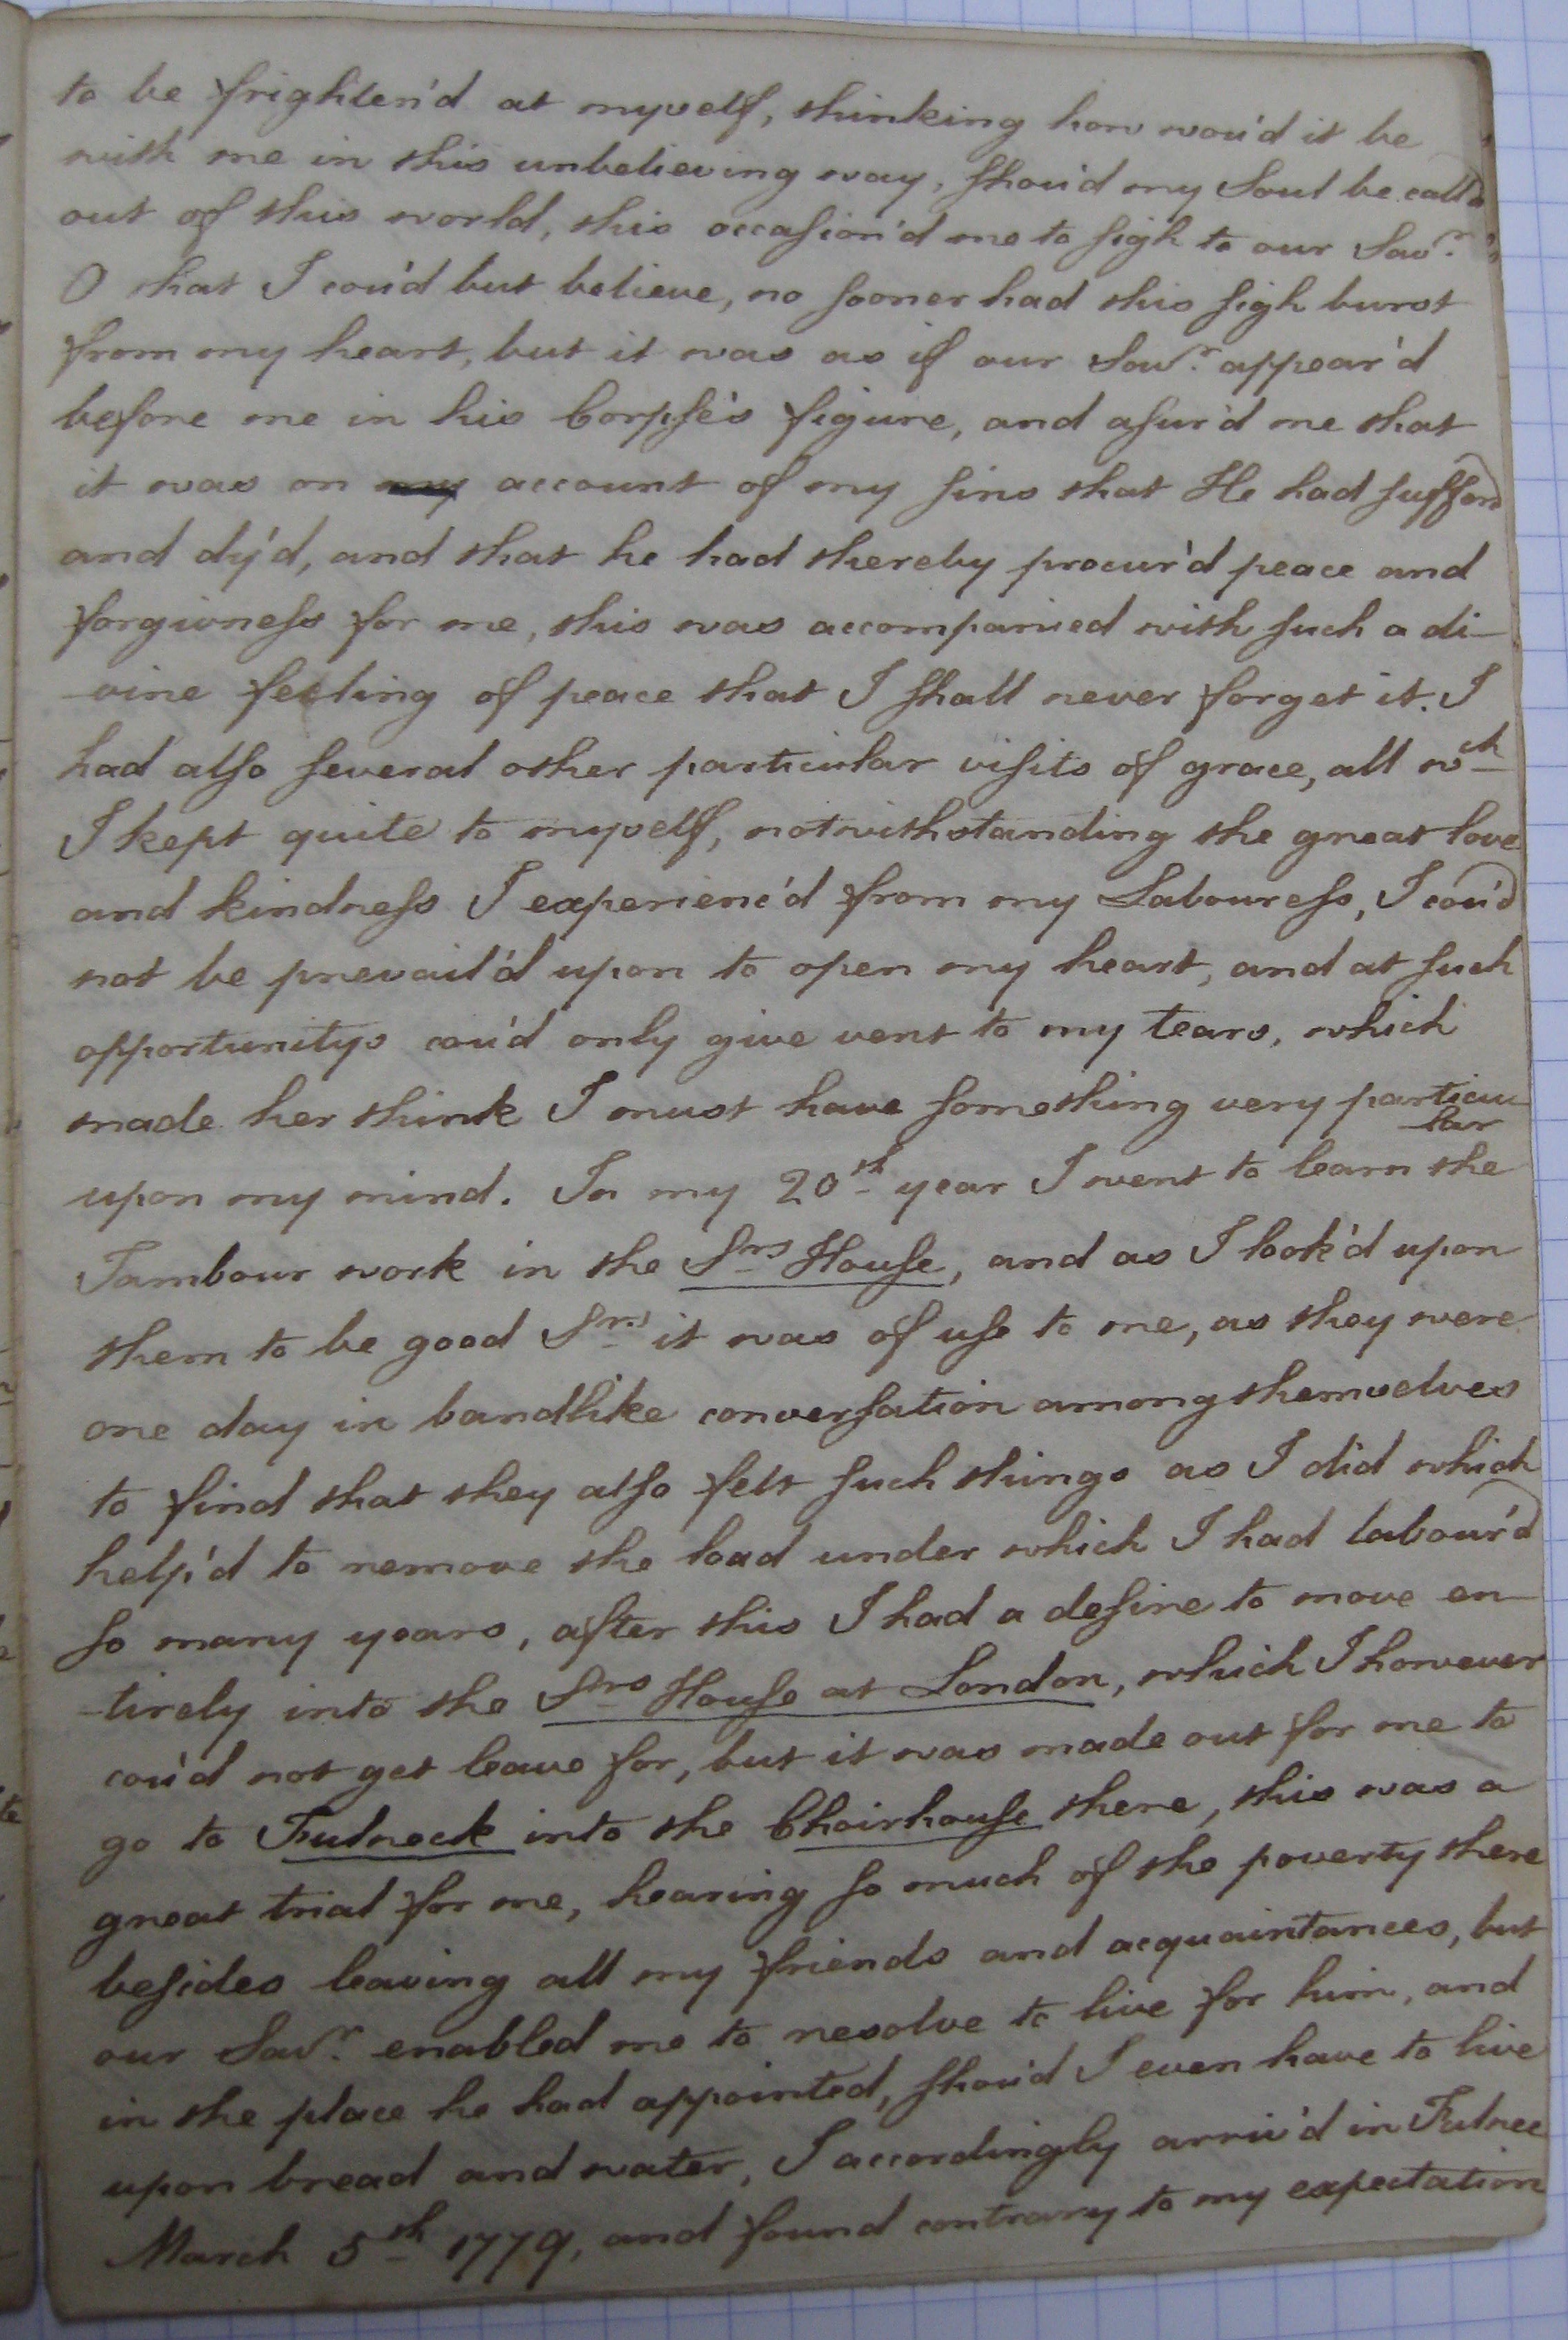 to be frighten'd at myself, thinking how wou'd it be
with me in this unbelieving way, shou'd my Soul be call'd
out of this world, this occasion'd me to sigh to our Savr.
O that I cou'd but believe, no sooner had this sigh burst
from my heart, but it was as if our Savr. appear'd
before me in his Corpse's figure, and asur'd me that
it was on my account of my sins that He had suffer'd
and dy'd, and that he had thereby procur'd peace and
forgivness for me, this was accompanied with such a di-
-vine feeling of peace that I shall never forget it. I
had also several other particular visits of grace, all wch
I kept quite to myself, notwithstanding the great love
and kindness I experienc'd from my Labouress, I cou'd
not be prevail'd upon to open my heart, and at such
opportunitys cou'd only give vent to my tears, which
made her think I must have something very particu
-lar
upon my mind. In my 20th year I went to learn the
Tambour work in the Srs House, and as I look'd upon
them to be good Srs it was of use to me, as they were
one day in bandlike conversation among themselves
to find that they also felt such things as I did which
help'd to remove the load under which I had labour'd
so many years, after this I had a desire to move en-
-tirely into the Srs House at London, which I however
cou'd not get leave for, but it was made out for me to
go to Fulneck into the Choirhouse there, this was a
great trial for me, hearing so much of the poverty there
besides leaving all my friends and acquaintances, but
our Savr. enabled me to resolve to live for him, and
in the place he had appointed, shou'd I even have to live
upon bread and water, I accordingly arriv'd in Fulnec
March 5th 1779, and found contrary to my expectation